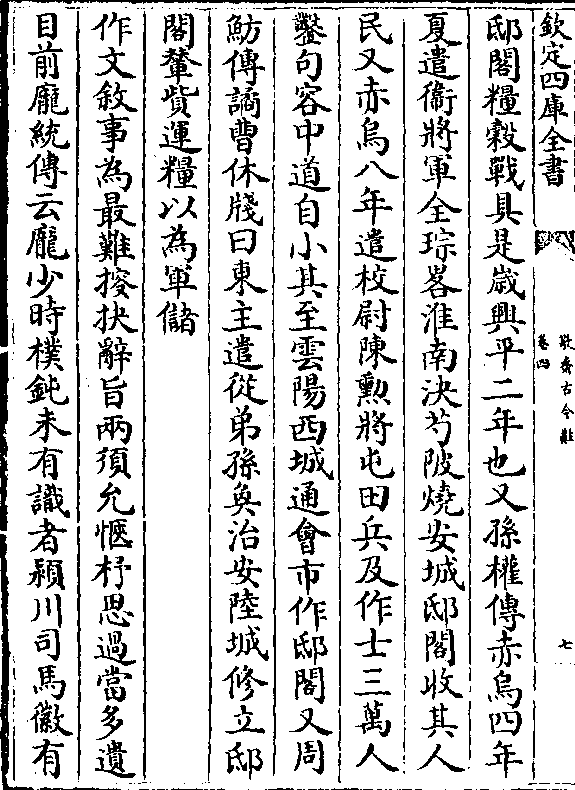 欽定四庫全書
敬齋古今黈
卷四
七
邸閣糧穀戰具是歳興平二年也又孫權傳赤烏四年
夏遣衞將軍全琮畧淮南决芍陂燒安城邸閣收其人
民又赤烏八年遣校尉陳勲將屯田兵及作士三萬人
鑿句容中道自小其至雲陽西城通會市作邸閣又周
魴傳譎曹休牋曰東主遣從弟孫奐治安陸城修立邸
閣輦貲運糧以為軍儲
作文敘事為最難按抉辭旨兩須允愜杼思過當多遺
目前龐統傳云龐少時樸鈍未有識者潁川司馬徽有